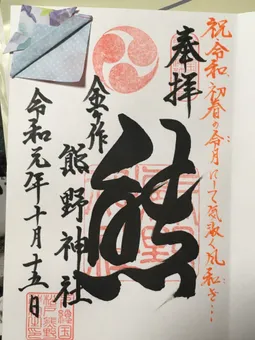 祝令和 初春の令月にして気淑く風和ぎ…
奉拝
熊
金ヶ作 熊野神社
令和元年十月十五日